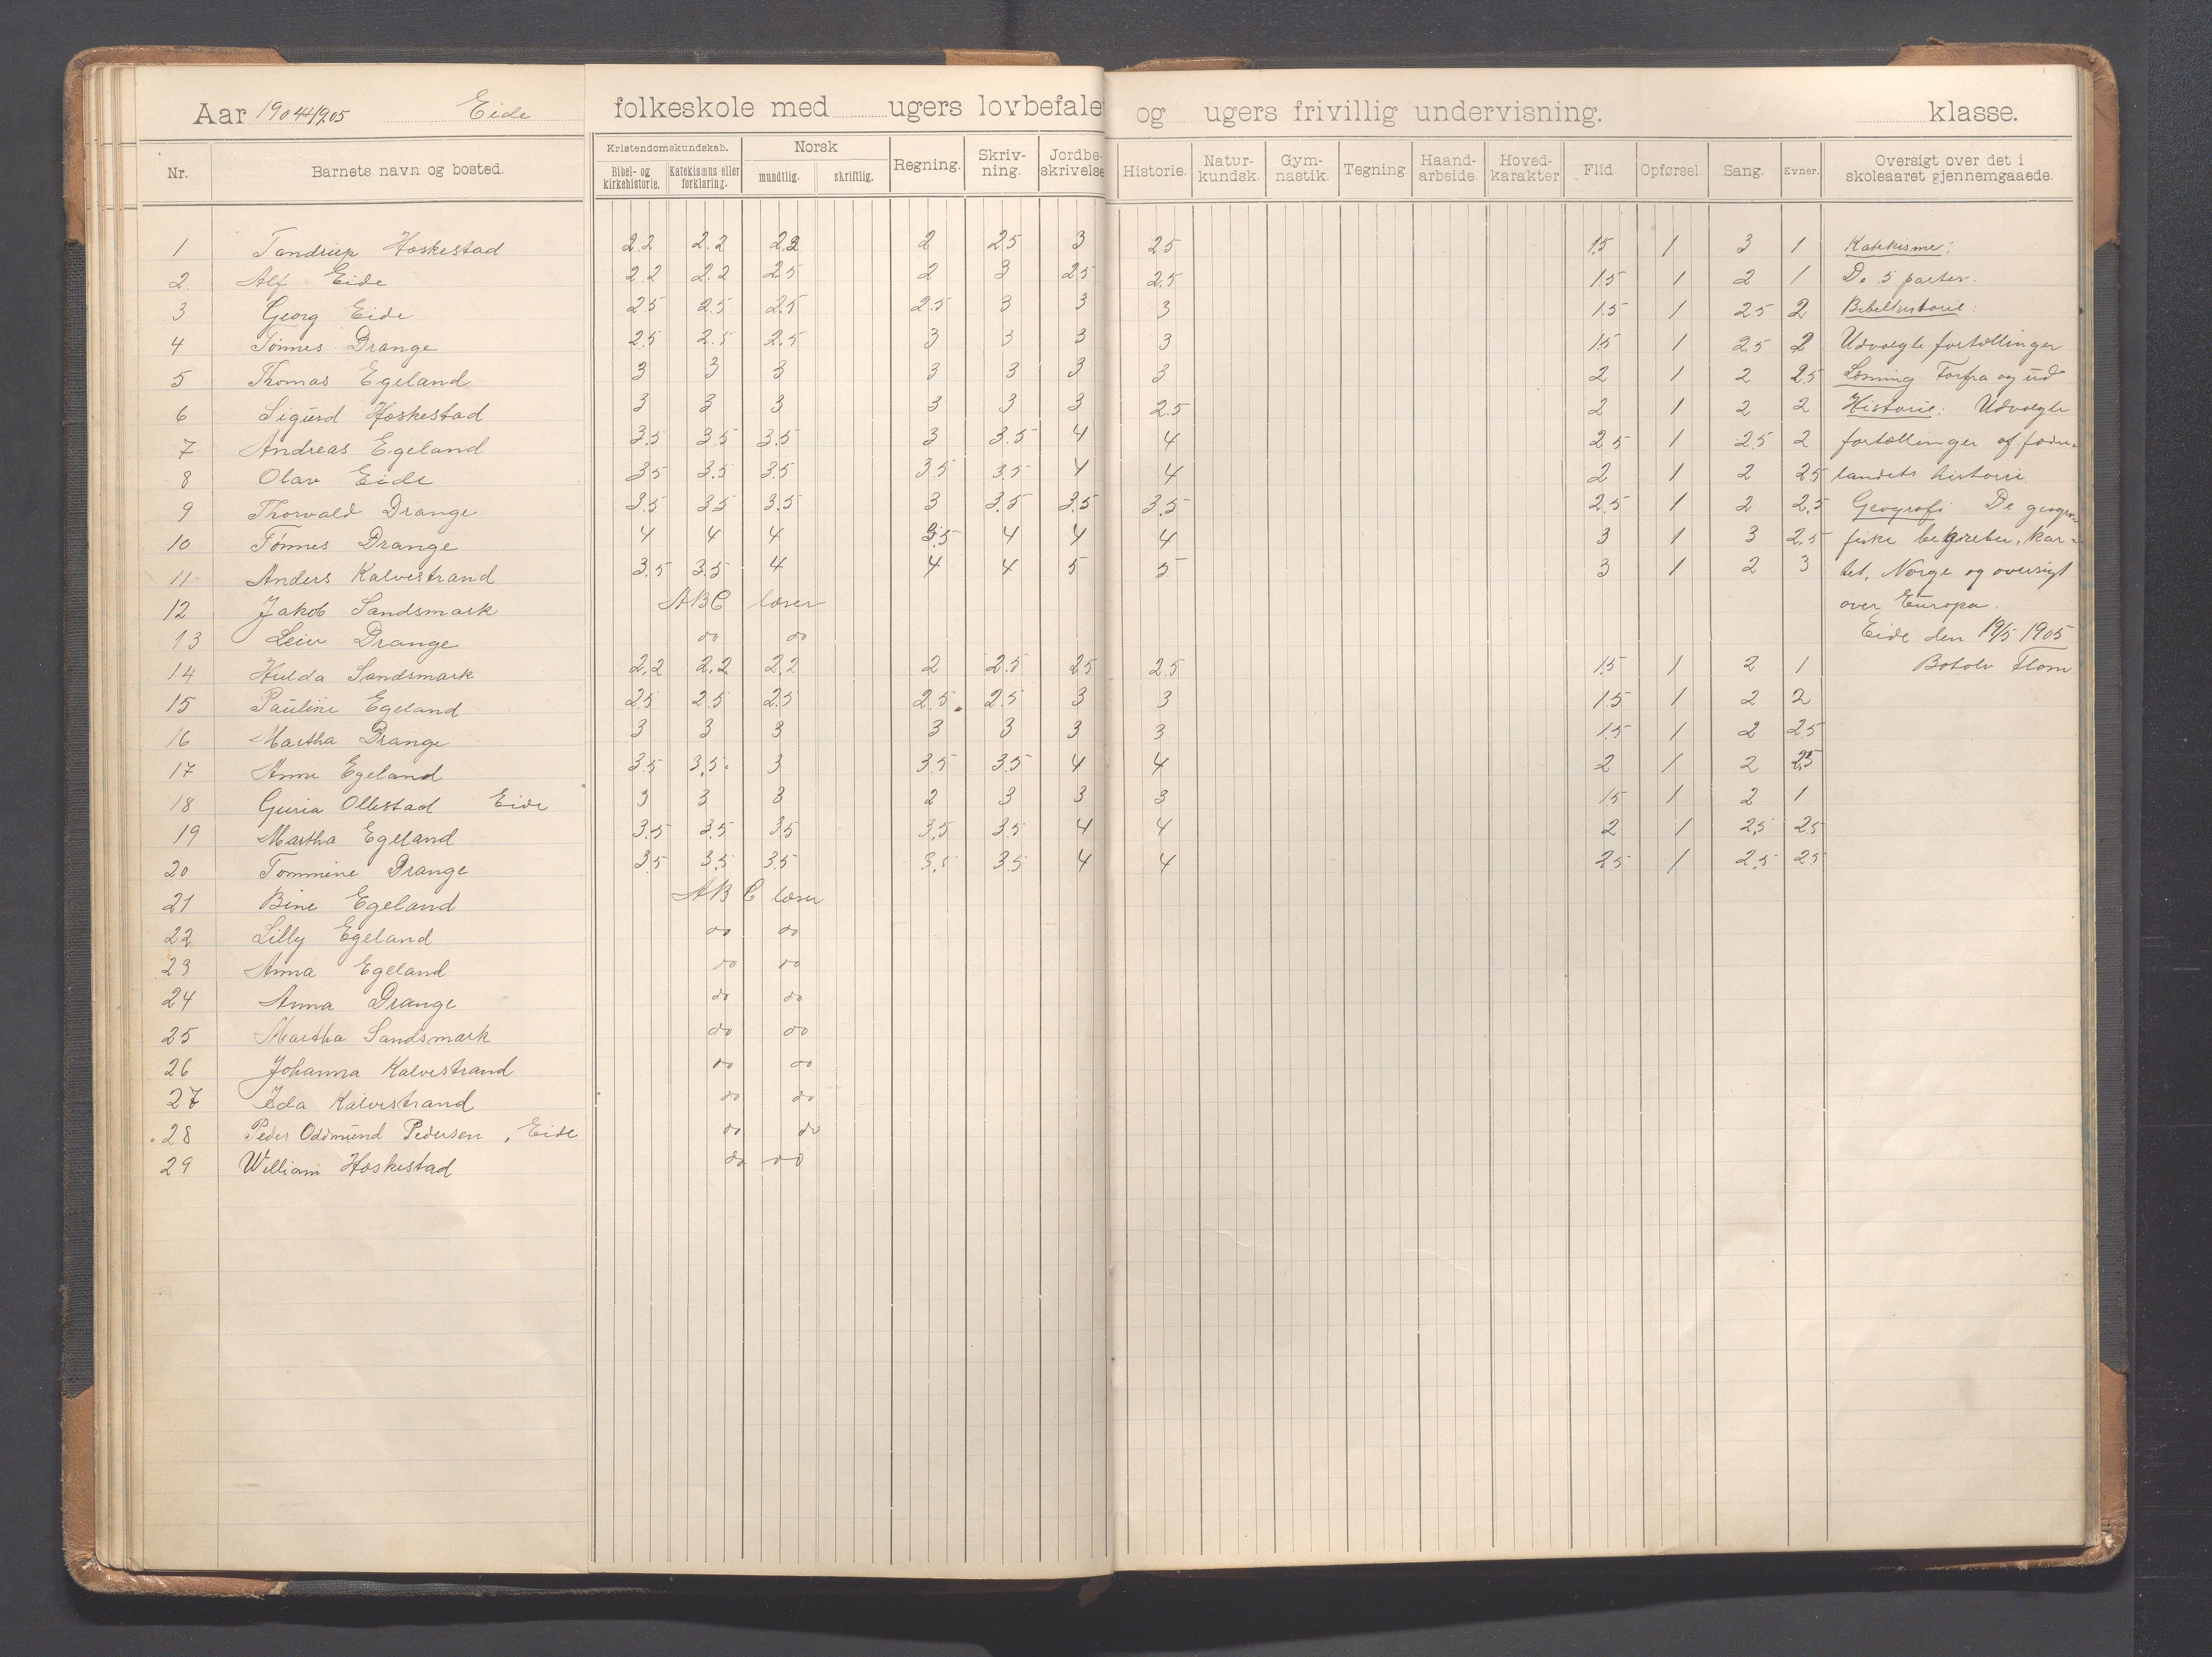 Aar 1904-1905 Eide folkeskole med ugers lovbefale og ugers frivillig undervisning. klasse.
Nr. Barnets navn og bosted. Kristendomskundskab. Bibel- og kirkehistorie. Katekismus eller forklaring. Norsk mundtlig. skriftlig. Regning. Skriv-ning. Jordbe-skrivelse Historie. Natur-kundsk. Gym-nastik. Tegning Haand-arbeide. Hoved-karakter Flid Opførsel Sang. Evner. Oversigt over det i skoleaaret gjennemgaaede.
1 Tandrup Hoskestad 2.2 2.2 2.2 2 2.5 3 2.5 1.5 1 3 1 Katekisme:
2. Alf Eide 2.2 2.2 2.5 2 3 2.5 2.5 1.5 1 2 1 De 5 parter.
3 Georg Eide 2.5 2.5 2.5 2.5 3 3 3 1.5 1 2.5 2 Bibelhistorie:
4 Tönnes Drange 2.5 2.5 2.5 3 3 3 3 1.5 1 2.5 2 Udvalgte fortællinger
5 Thomas Egeland 3 3 3 3 3 3 3 2 1 2 2.5 Læsning Forfra og ud
6 Sigurd Hoskestad 3 3 3 3 3 3 2.5 2 1 2 2 Historie: Udvalgte
7 Andreas Egeland 3.5 3.5 3.5 3 3.5 4 4 2.5 1 2.5 2 fortællinger af fædre-
8 Olav Eide 3.5 3.5 3.5 3.5 3.5 4 4 2 1 2 2.5 landets historie.
9 Thorvald Drange 3.5 3.5 3.5 3 3.5 3.5 3.5 2.5 1 2 2.5 Geografi De geogra-
10 Tönnes Drange 4 4 4 3.5 4 4 4 3 1 3 2.5 fiske begreber, kar-
11 Anders Kalvestrand 3.5 3.5 4 4 4 5 5 3 1 2 3 tet, Norge og oversigt
12 Jakob Sandsmark ABC læser over Europa.
13 Leiv Drange do do Eide den 19/5 1905
14 Hulda Sandsmark 2.2 2.2 2.2 2 2.5 2.5 2.5 1.5 1 2 1 Botolv Flom
15 Pauline Egeland 2.5 2.5 2.5 2.5 2.5 3 3 1.5 1 2 2
16 Martha Drange 3 3 3 3 3 3 3 1.5 1 2 2.5
17 Anne Egeland 3.5 3.5 3 3.5 3.5 4 4 2 1 2 2.5
18 Guria Ollestad Eide 3 3 3 2 3 3 3 1.5 1 2 1
19 Martha Egeland 3.5 3.5 3.5 3.5 3.5 4 4 2 1 2.5 2.5
20 Tommine Drange 3.5 3.5 3.5 3.5 3.5 4 4 2.5 1 2.5 2.5
21 Bine Egeland ABC læser
22 Lilly Egeland do do
23 Anna Egeland do do
24 Anna Drange do do
25 Martha Sandsmark do do
26 Johanna Kalvestrand do do
27 Ida Kalvestrand do do
28 Peder Oddmund Pedersen, Eide do do
29 William Hoskestad do do